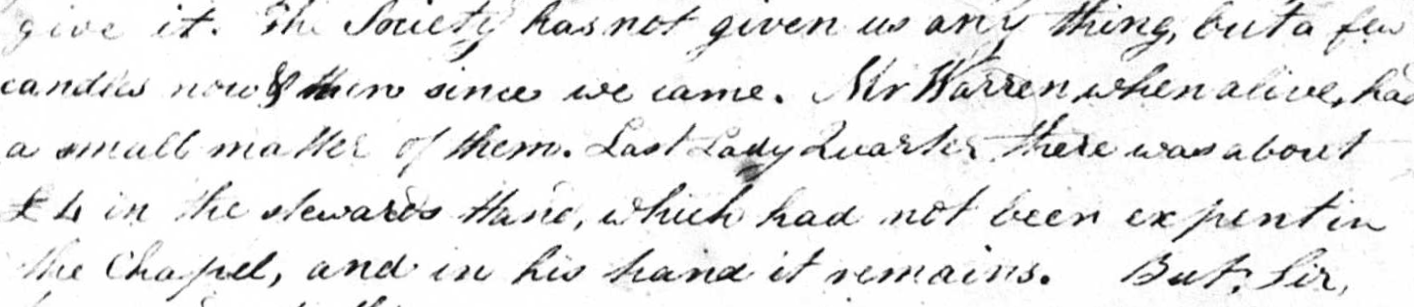 give it. The Society has not given us any thing, but a few
candles now & then since we came. Mr Warren when alive, had
a small matter of them. Last Lady Quarter there was about
£4 in the stewards Hand, which had not been expent in
the Chapel, and in his hand it remains. But, Sir,